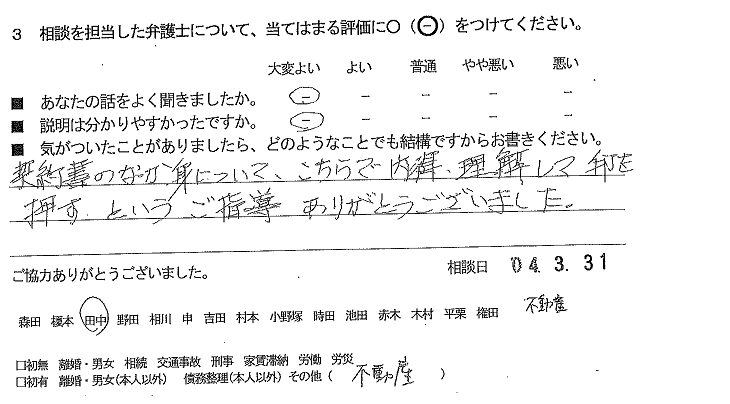 3 相談を担当した弁護士について、当てはまる評価に○（⊖）をつけてください。
大変よい よい 普通 やや悪い 悪い
■ あなたの話をよく聞きましたか。 － － － － －
■ 説明は分かりやすかったですか。 － － － － －
■ 気がついたことがありましたら、どのようなことでも結構ですからお書きください。
契約書のなか身について、こちらで内容、理解して印を
押す、というご指導 ありがとうございました。
ご協力ありがとうございました。 相談日 04. 3. 31
森田 榎本 田中 野田 相川 申 吉田 村本 小野塚 時田 池田 赤木 木村 平栗 権田 不動産
□初無 離婚・男女 相続 交通事故 刑事 家賃滞納 労働 労災
□初有 離婚・男女(本人以外) 債務整理(本人以外) その他（ 不動産 ）